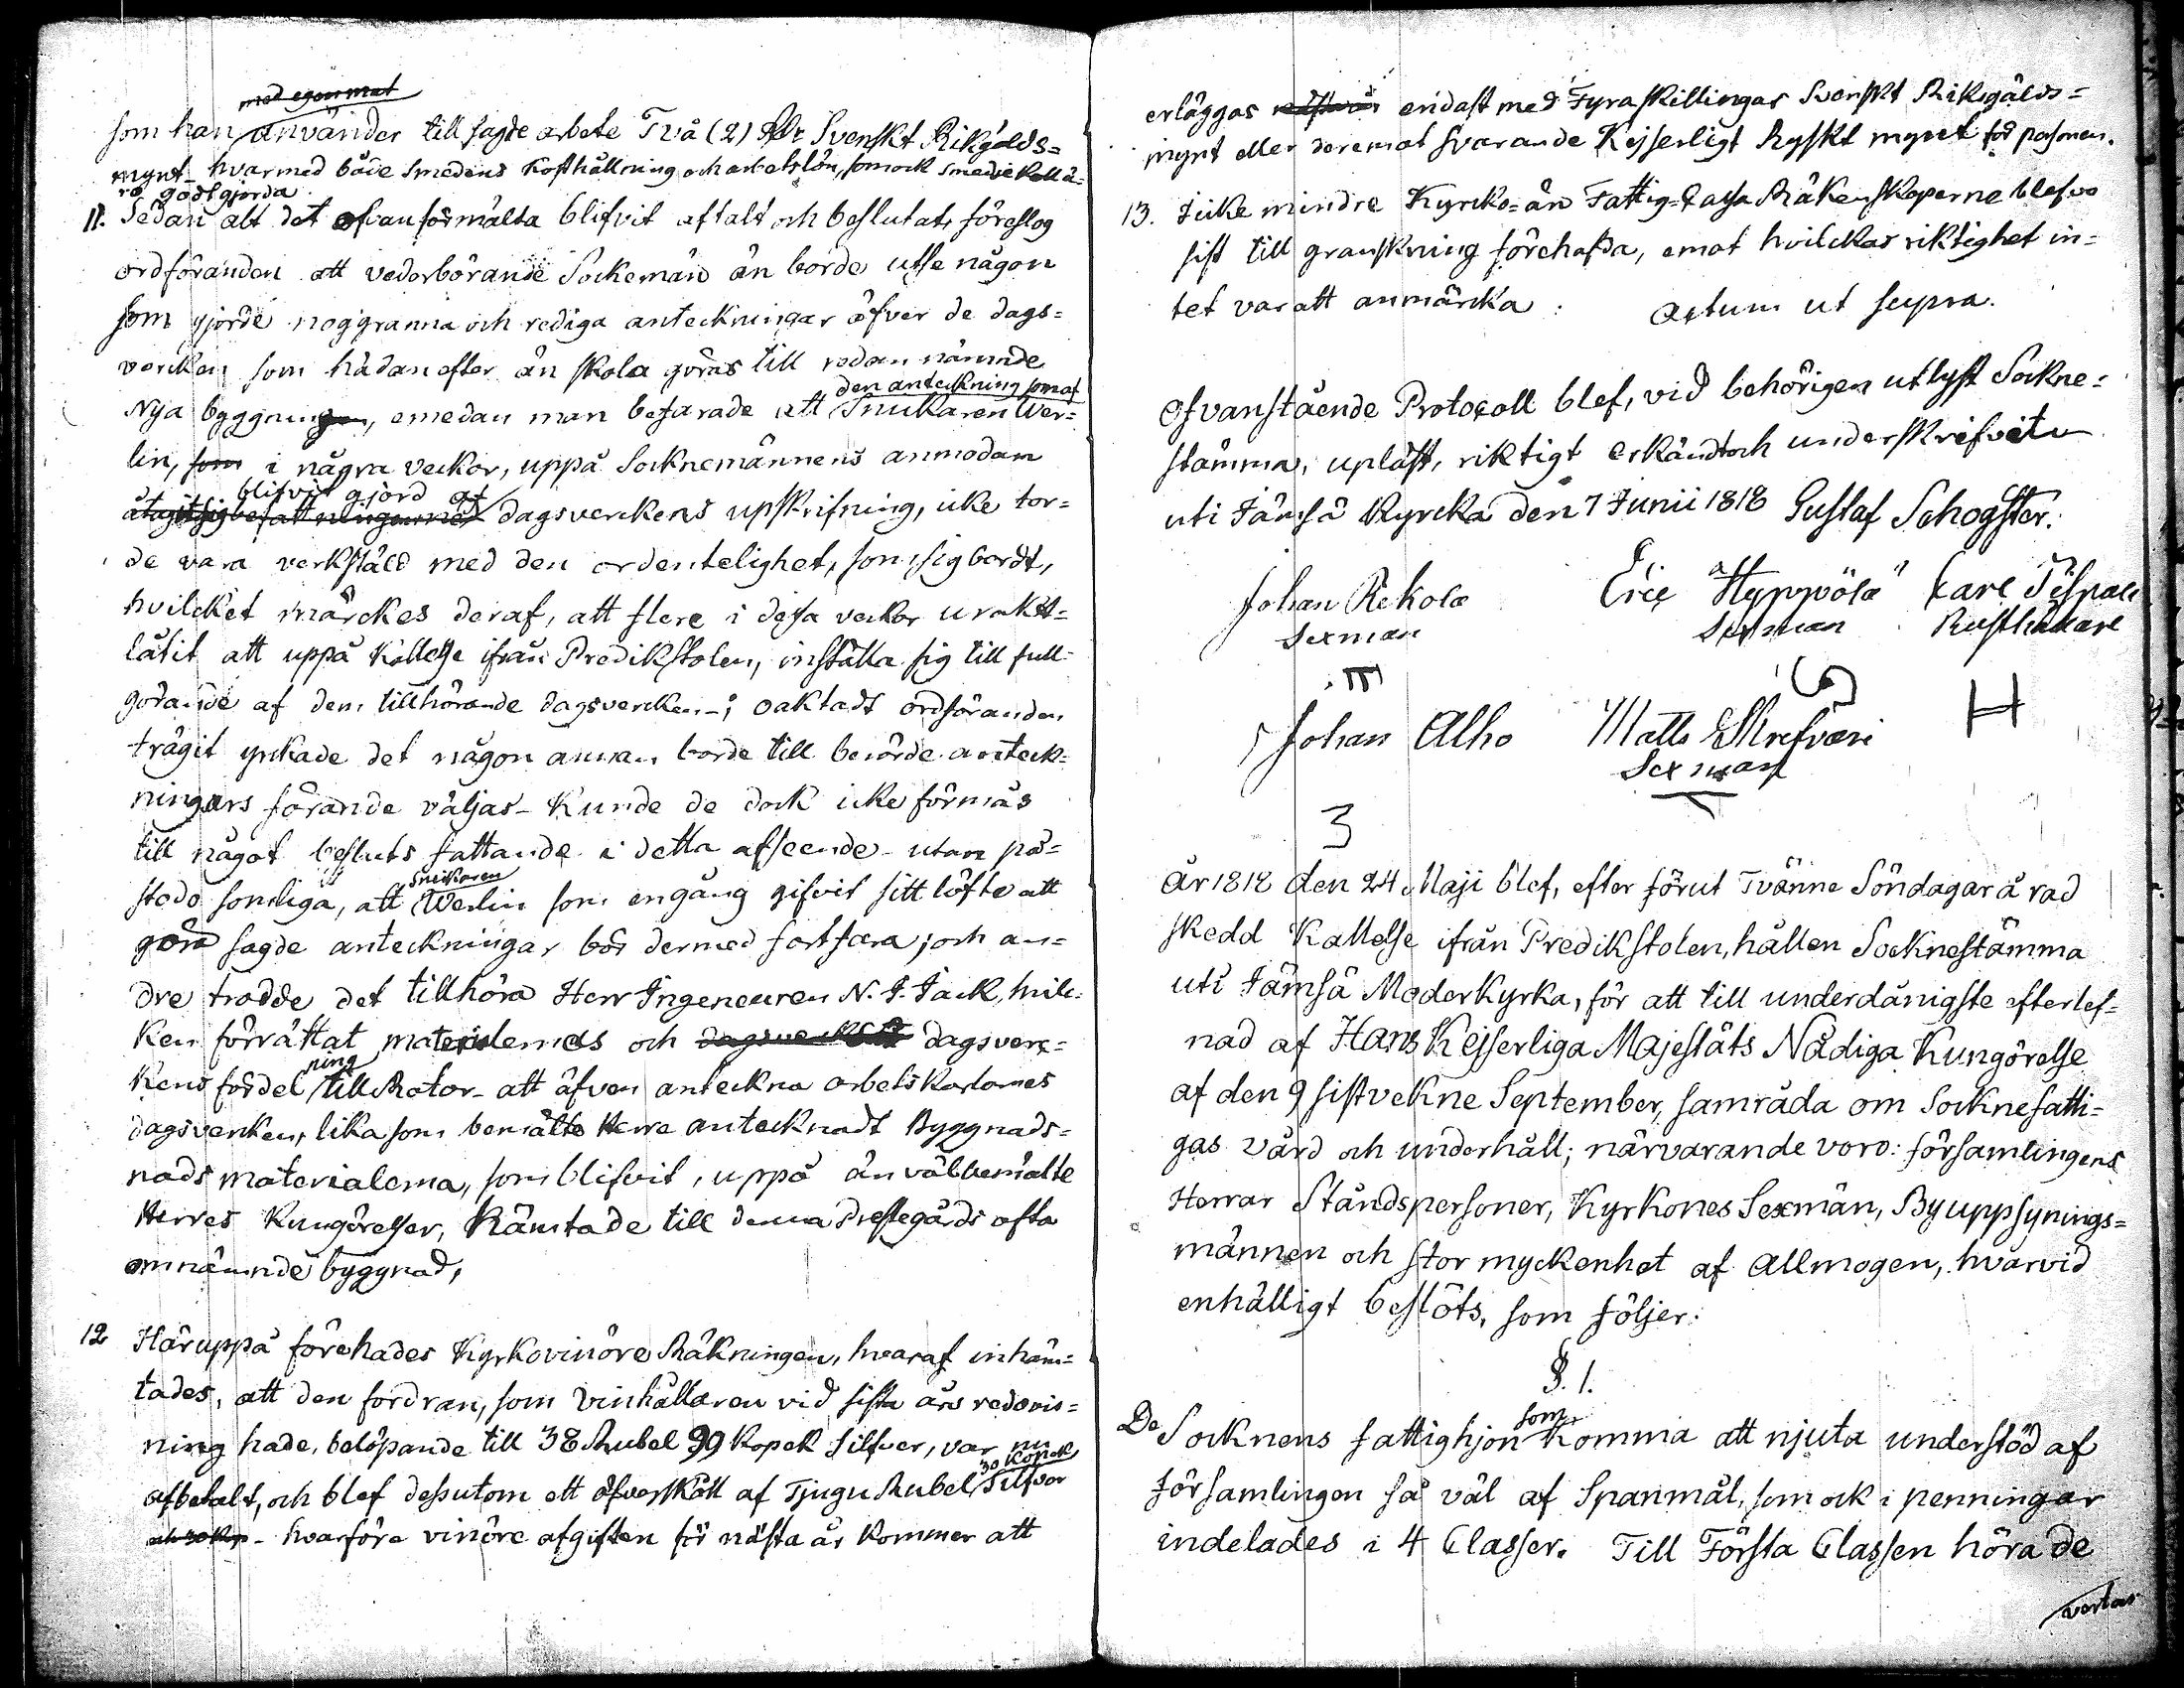 med egen mat
som han använder till sagde arbete Två (2) Rdr Svenskt Rikgälds=
mynt hvarmed både Smedens Kosthållning och arbetslön, som ock Smedje Koll ä=
ro godtgjorda.
11. Sedan alt det ofvanförmälta blifvit aftalt och beslutat, föreslog
ordföranden att vederbörande Sockemän än borde utse någon
som gjorde noggranna och rediga anteckningar öfver de dags=
vercken som hädanefter än skola göras till redan nämnde
den anteckning som af
Nya byggningen, emedan man befarade att Snickaren Wer=
lin, som i några veckor, uppå Socknemännens anmodan
blifvit gjord af
åtagit sig befattningarne dagsverckens upskrifning, icke tor=
de vara verkstäld med den ordentelighet, som sig bordt,
hvilcket märckes deraf, att flere i dessa veckor urakt=
låtit att uppå Kallelse ifrån Predikstolen, inställa sig till full=
görande af dem tillhörande dagsvercken; oaktadt ordföranden
trägit yrkade det någon annan borde till berörde anteck=
ningars förande väljas - Kunde de dock icke förmås
till något besluts fattande i detta afseende - utan på=
Snickaren
stodo somliga, att Werlin som engång gifvit sitt löfte att
göra sagde anteckningar bör dermed fortfara; och an=
dre trodde det tillhöra Herr Ingeneuren N. J. Jack, hvilc=
ken förrättat materialernas och dagsverc=
ning
kens fördel till Rotor - att äfven anteckna arbetskarlarnes
dagsvercken, lika som bemälte Herre antecknadt Byggnads=
nads materialerna, som blifvit, uppå än välbemälte
Herres Kungörelser, hämtade till denna Prestegårds ofta
omnämnde byggnad,
12 Häruppå förehades Kyrkovinöre Räkningen, hvaraf inhäm=
tades, att den fordran, som Vinhållaren vid sista års redovis=
ning hade, belöpande till 38 Rubel 99 Kopek Silfver, var nu
30 Kopek
afbetalt, och blef dessutom ett öfverskott af Tjugu Rubel Silfver
och 30 Kop - hvarföre vinöre afgiften för nästa år kommer att
erläggas endast med Fyra skillingar Svenskt Riksgälds=
mynt eller deremot svarande Kejserligt Ryskt mynt för personen.
13. Icke mindre Kyrcko= än Fattig=Cassa Räkenskaperne blefvo
sist till granskning förehafda, emot hvilckas riktighet in=
tet var att anmärcka: Actum ut supra.
Ofvanstående Protocoll blef, vid behörigen utlyst Sockne=
stämma, upläst, riktigt erkändt och underskrifvit
uti Jämsä Kyrcka den 7 Junii 1818 Gustaf Schogster.
Johan Rekola Eric Hyppölä Carl
Sexman Sexman Rusthållare
Johan Alho Matts H
Sexman
3
År 1818 den 24 Maji blef, efter förut Tvänne Söndagar å rad
skedd Kallelse ifrån Predikstolen, hållen Socknestämma
uti Jämsä Moderkyrka, för att till underdånigste efterlef=
nad af Hans Kejserliga Majestäts Nådiga Kungörelse
af den 9 sistvekne September, samråda om Socknefatti=
gas vård och underhåll; närvarande voro: församlingens
Herrar Ståndspersoner, Kyrkones Sexmän, Byuppsynings=
männen och stor myckenhet af Allmogen, hvarvid
enhälligt beslöts, som följer:
§. 1.
som
De Socknens fattighjon Komma att njuta understöd af
församlingen så väl af Spanmål, som ock i penningar
indelades i 4 Classer. Till Första Classen höra de
vertas